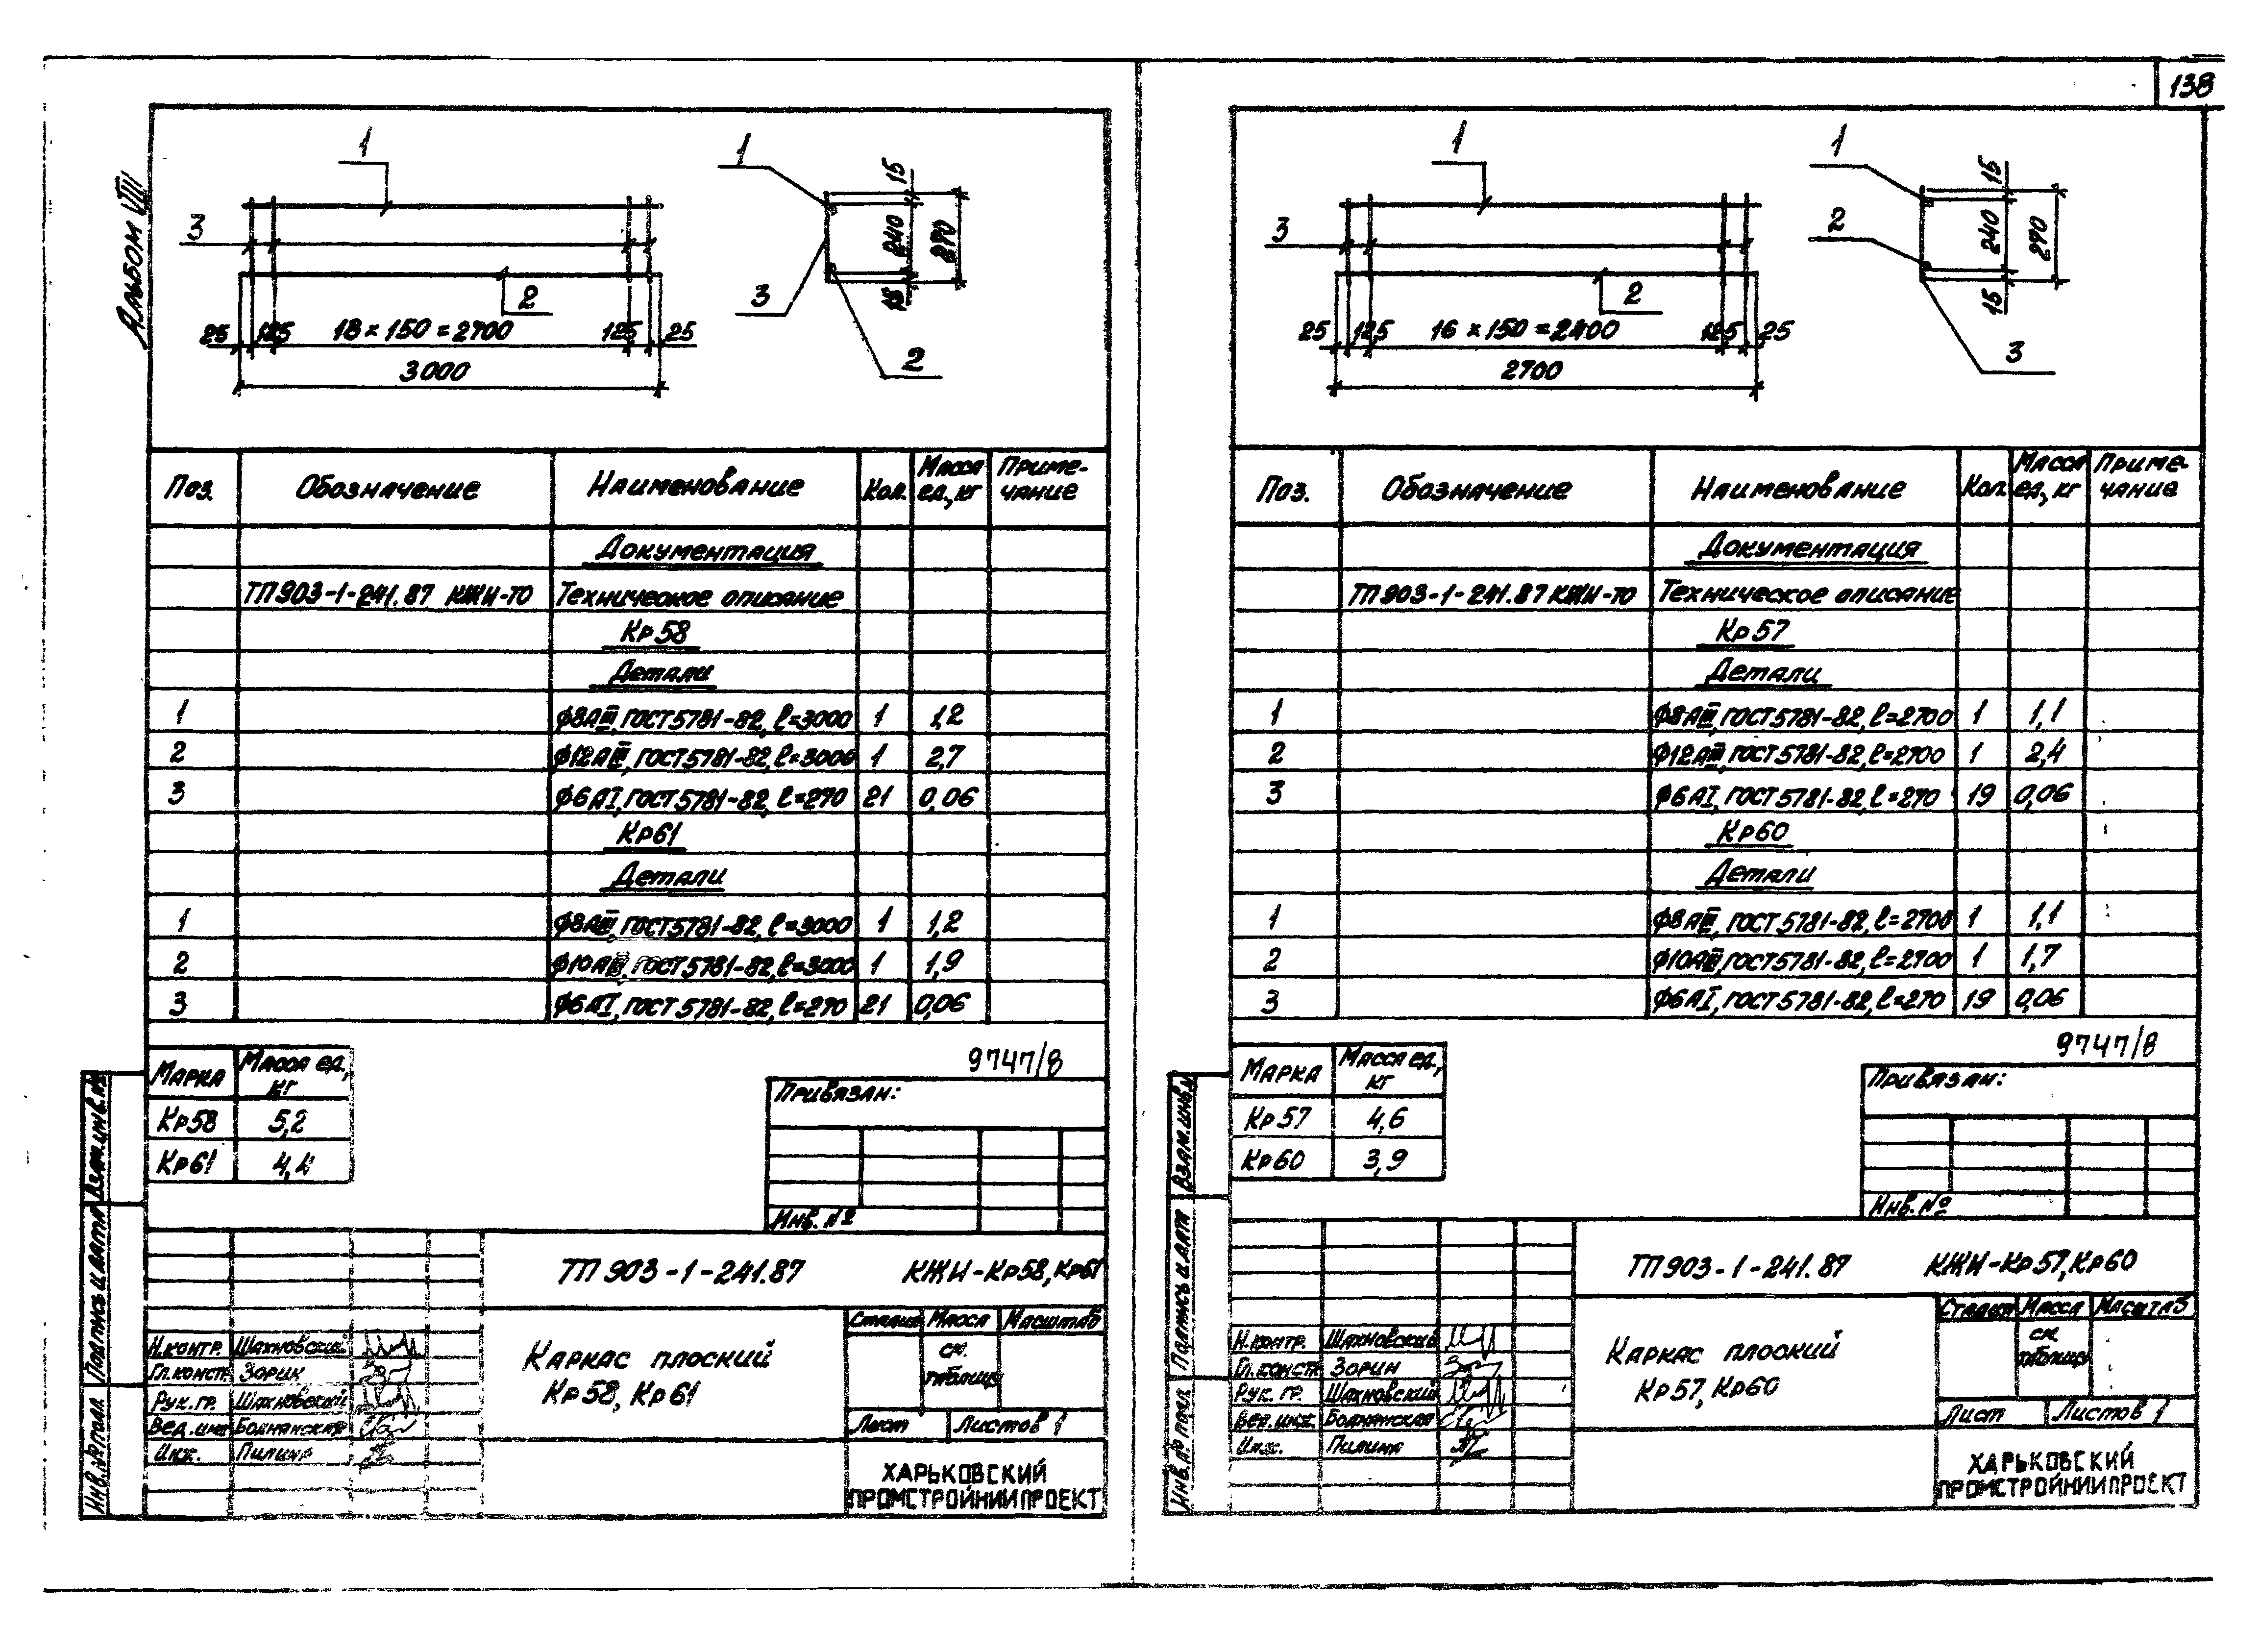 138
Альбом VIII
1
3
2
25 125 18 × 150 = 2700 125 25
3000
1
3
2
15
240
270
15
Поз. Обозначение Наименование Кол. Масса ед., кг Приме-чание
Документация
ТП 903-1-241.87 КЖИ-ТО Техническое описание
Кр58
Детали
1 ф8АIII, ГОСТ 5781-82, ℓ=3000 1 1,2
2 ф12АIII, ГОСТ 5781-82, ℓ=3000 1 2,7
3 ф6АI, ГОСТ 5781-82, ℓ=270 21 0,06
Кр61
Детали
1 ф8АIII, ГОСТ 5781-82, ℓ=3000 1 1,2
2 ф10АIII, ГОСТ 5781-82, ℓ=3000 1 1,9
3 ф6АI, ГОСТ 5781-82, ℓ=270 21 0,06
9747/8
Марка Масса ед., кг
Кр58 5,2
Кр61 4,4
Привязан:
Инв. №
ТП 903-1-241.87 КЖИ-Кр58, Кр61
Каркас плоский
Кр58, Кр61
Стадия Масса Масштаб
см.
таблицу
Лист Листов 1
Н.контр. Шахновский
Гл.констр. Зорин
Рук. гр. Шахновский
Вед. инж. Болнанская
Инж. Пилина
ХАРЬКОВСКИЙ
ПРОМСТРОЙНИИПРОЕКТ
Взам. инв. №
Подпись и дата
Инв. № подл.
1
3
2
25 125 16 × 150 = 2400 125 25
2700
1
2
3
15
240
270
15
Поз. Обозначение Наименование Кол. Масса ед., кг Приме-чание
Документация
ТП 903-1-241.87 КЖИ-ТО Техническое описание
Кр57
Детали
1 ф8АIII, ГОСТ 5781-82, ℓ=2700 1 1,1
2 ф12АIII, ГОСТ 5781-82, ℓ=2700 1 2,4
3 ф6АI, ГОСТ 5781-82, ℓ=270 19 0,06
Кр60
Детали
1 ф8АIII, ГОСТ 5781-82, ℓ=2700 1 1,1
2 ф10АIII, ГОСТ 5781-82, ℓ=2700 1 1,7
3 ф6АI, ГОСТ 5781-82, ℓ=270 19 0,06
9747/8
Марка Масса ед., кг
Кр57 4,6
Кр60 3,9
Привязан:
Инв. №
ТП 903-1-241.87 КЖИ-Кр57, Кр60
Каркас плоский
Кр57, Кр60
Стадия Масса Масштаб
см.
таблицу
Лист Листов 1
Н.контр. Шахновский
Гл.констр. Зорин
Рук. гр. Шахновский
Вед. инж. Болнанская
Инж. Пилина
ХАРЬКОВСКИЙ
ПРОМСТРОЙНИИПРОЕКТ
Взам. инв. №
Подпись и дата
Инв. № подл.